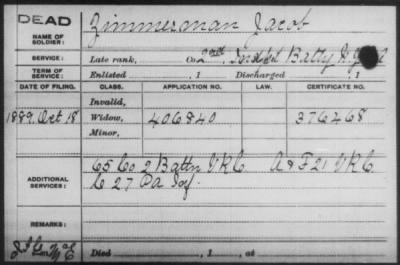 DEAD
NAME OF SOLDIER: Zimmerman Jacob
SERVICE: Late rank, Co 2nd, Batty
TERM OF SERVICE: Enlisted , 1 Discharged , 1
DATE OF FILING. CLASS. APPLICATION NO. LAW. CERTIFICATE NO.
Invalid,
1889. Oct 18 Widow, 406840 376268
Minor,
ADDITIONAL SERVICES: 65 Co 2 Battn V R C A & F 21 V R C
C 27 Pa Inf.
REMARKS:
Died , 1 , at